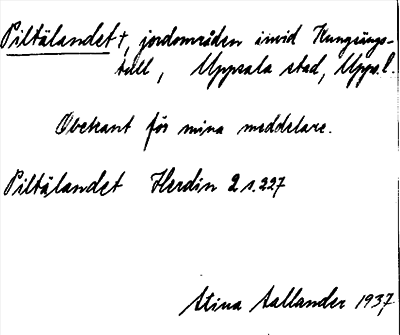 Piltälandet †, jordområden invid Kungsängs-
tull, Uppsala stad, Upps. l.
Obekant för mina meddelare.
Piltälandet Herdin 2 s. 227
Stina Sallander 1937